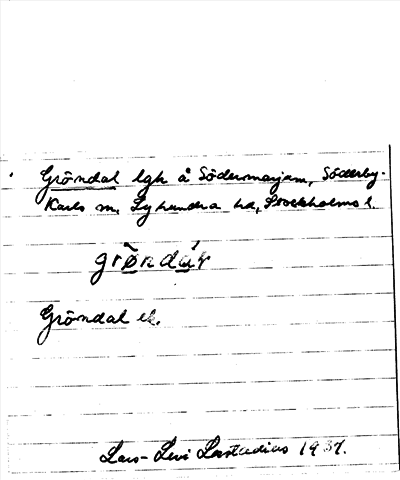 Gröndal lgh å Södermarjum, Söderby-
Karls sn, Lyhundra hd, Stockholms l.
grö̀ndáɽ
Gröndal ek.
Lars-Levi Læstadius 1937.